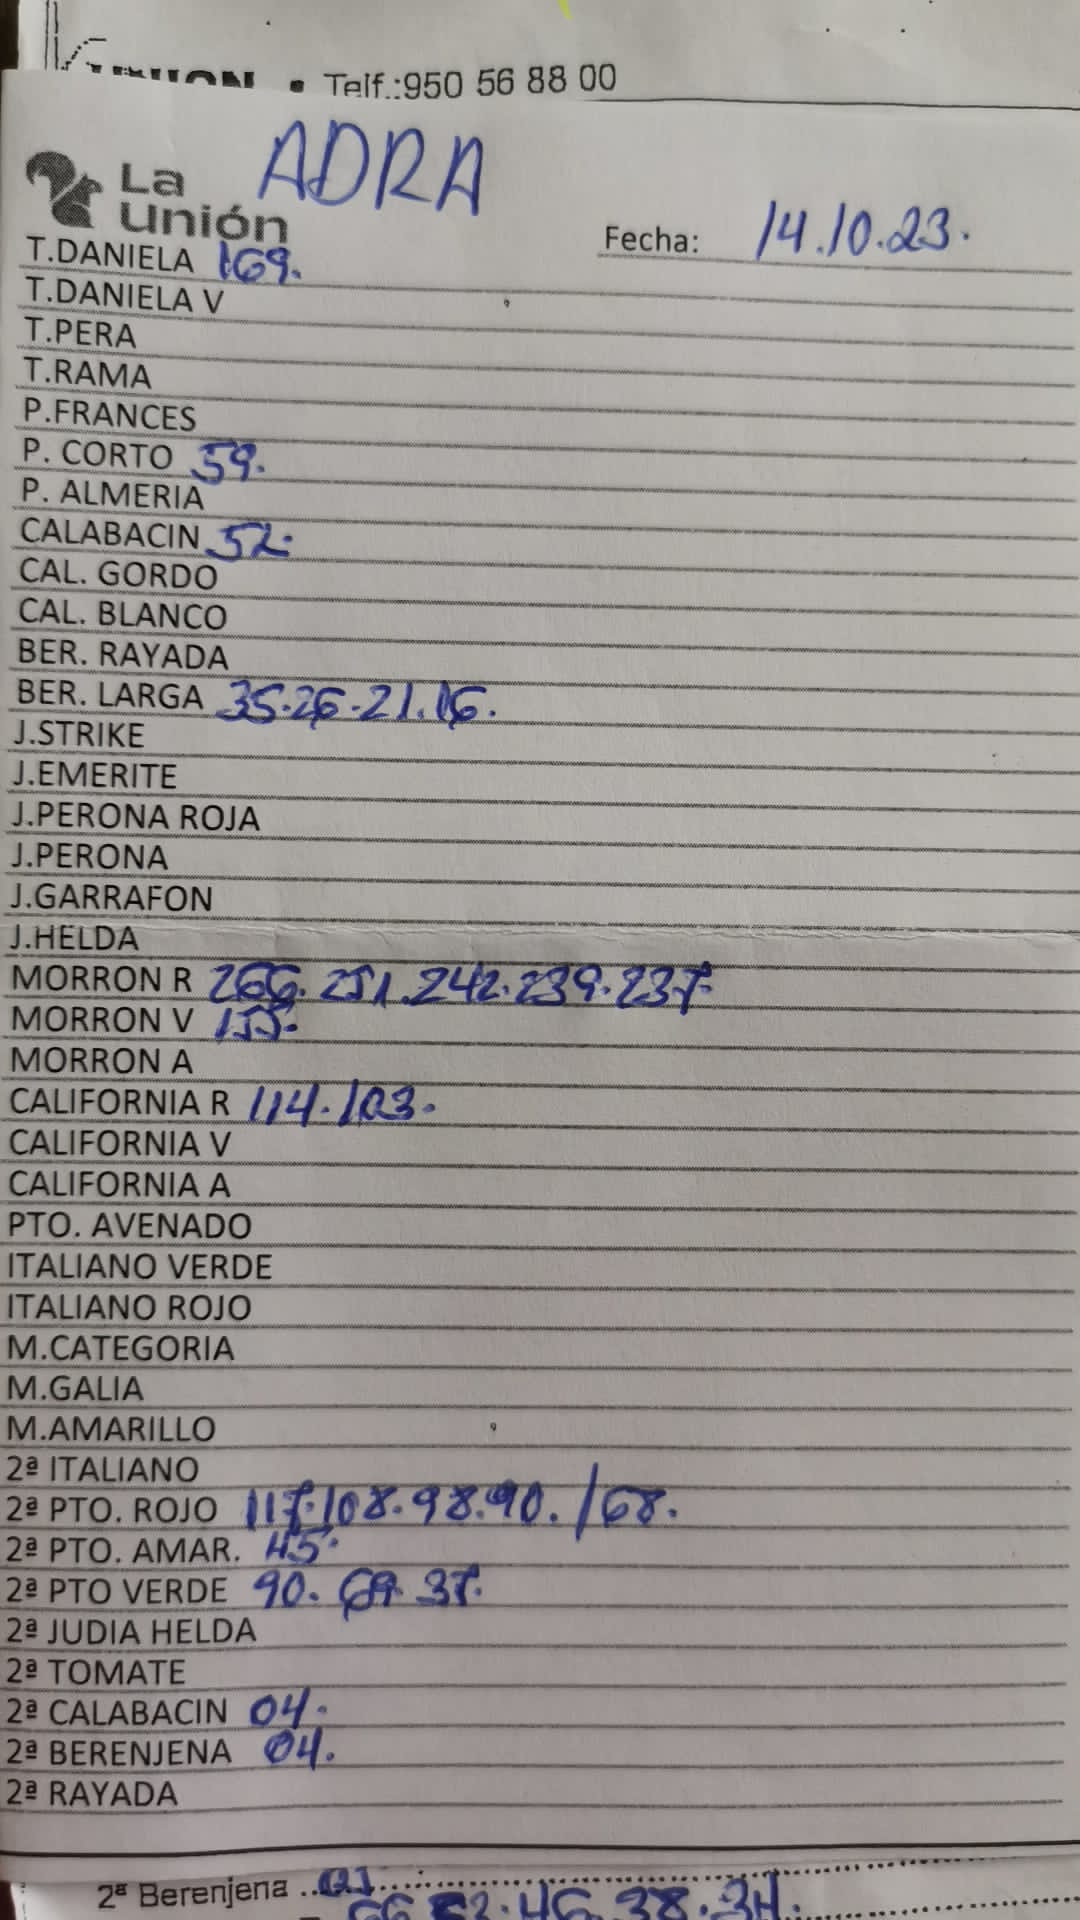 UNION • Telf.:950 56 88 00
ADRA
La Unión
Fecha: 14.10.23.
T.DANIELA 169.
T.DANIELA V
T.PERA
T.RAMA
P.FRANCES
P. CORTO 59.
P. ALMERIA
CALABACIN 52.
CAL. GORDO
CAL. BLANCO
BER. RAYADA
BER. LARGA 35.26.21.16.
J.STRIKE
J.EMERITE
J.PERONA ROJA
J.PERONA
J.GARRAFON
J.HELDA
MORRON R 266.251.242.239.237.
MORRON V 155.
MORRON A
CALIFORNIA R 114.103.
CALIFORNIA V
CALIFORNIA A
PTO. AVENADO
ITALIANO VERDE
ITALIANO ROJO
M.CATEGORIA
M.GALIA
M.AMARILLO
2ª ITALIANO
2ª PTO. ROJO 117.108.98.90./68.
2ª PTO. AMAR. 45.
2ª PTO VERDE 90. 69. 37.
2ª JUDIA HELDA
2ª TOMATE
2ª CALABACIN 04.
2ª BERENJENA 04.
2ª RAYADA
2ª Berenjena
46.38.34.